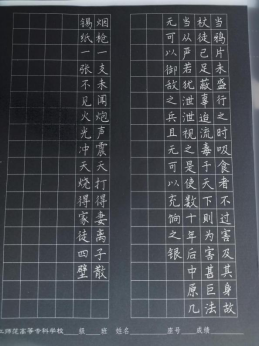 当鸦片永盛行之时吸食者不过害及其身故
杖徒已足蔽辜迨流毒于天下则为害甚巨法
当从严若犹泄泄视之是使数十年后中原几
无可以御敌之兵且无可以充饷之银
烟枪一支未闻炮声震天打得妻离子散
锡纸一张不见火光冲天烧得家徒四壁
师范高等专科学校 级 班 姓名 座号 成绩